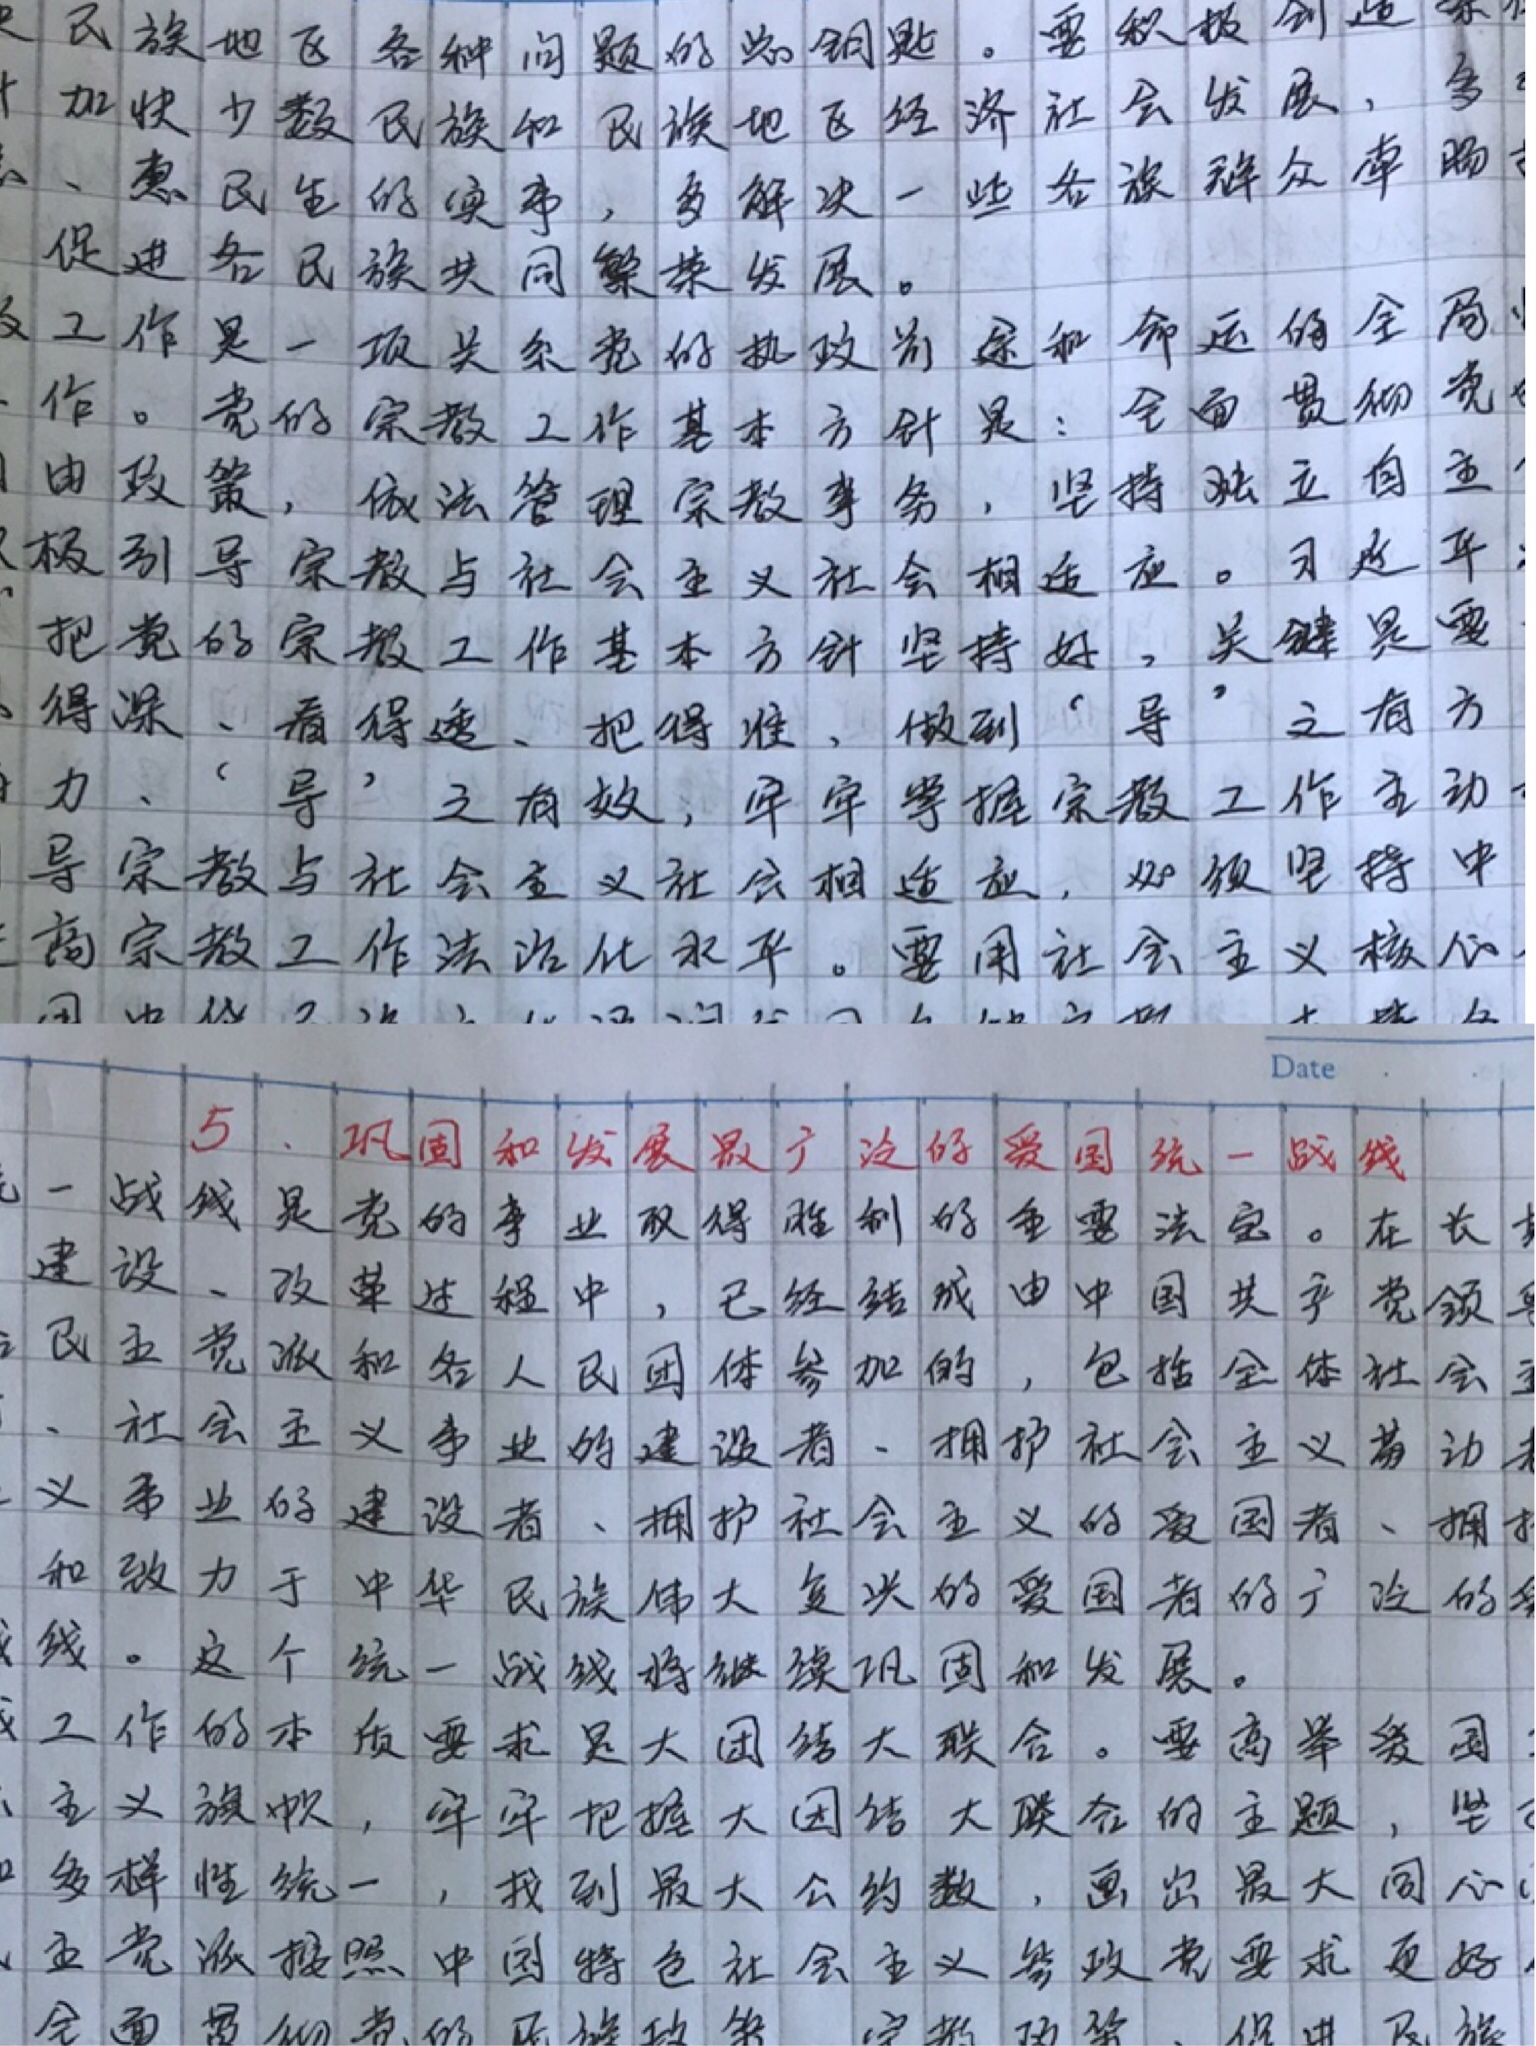 民族地区各种问题的总钥匙。要积极创造条
加快少数民族和民族地区经济社会发展，多
、惠民生的实事，多解决一些各族群众牵肠
促进各民族共同繁荣发展。
工作是一项关系党的执政前途和命运的全局
作。党的宗教工作基本方针是：全面贯彻党
由政策，依法管理宗教事务，坚持独立自主
极引导宗教与社会主义社会相适应。习近平
把党的宗教工作基本方针坚持好，关键是要
得深、看得透、把得准，做到‘导’之有方
力、‘导’之有效，牢牢掌握宗教工作主动
导宗教与社会主义社会相适应，必须坚持中
高宗教工作法治化水平。要用社会主义核心
Date
5、巩固和发展最广泛的爱国统一战线
一战线是党的事业取得胜利的重要法宝。在长
建设、改革过程中，已经结成由中国共产党领导
民主党派和各人民团体参加的，包括全体社会主
、社会主义事业的建设者、拥护社会主义劳动者
义事业的建设者、拥护社会主义的爱国者、拥护
和致力于中华民族伟大复兴的爱国者的广泛的爱
线。这个统一战线将继续巩固和发展。
工作的本质要求是大团结大联合。要高举爱国
主义旗帜，牢牢把握大团结大联合的主题，坚
多样性统一，找到最大公约数，画出最大同心
主党派按照中国特色社会主义参政党要求更好
全面贯彻党的民族政策、宗教政策，促进民族